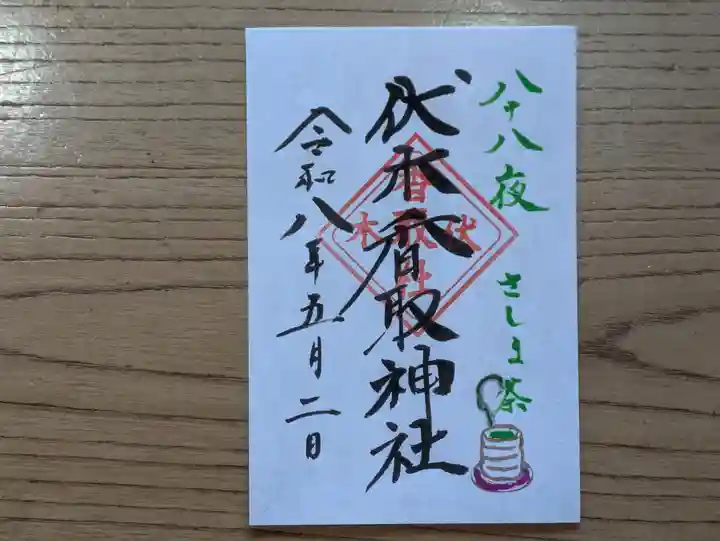 八十八夜 さしま茶
伏木香取神社
伏木
香取社
令和八年五月二日